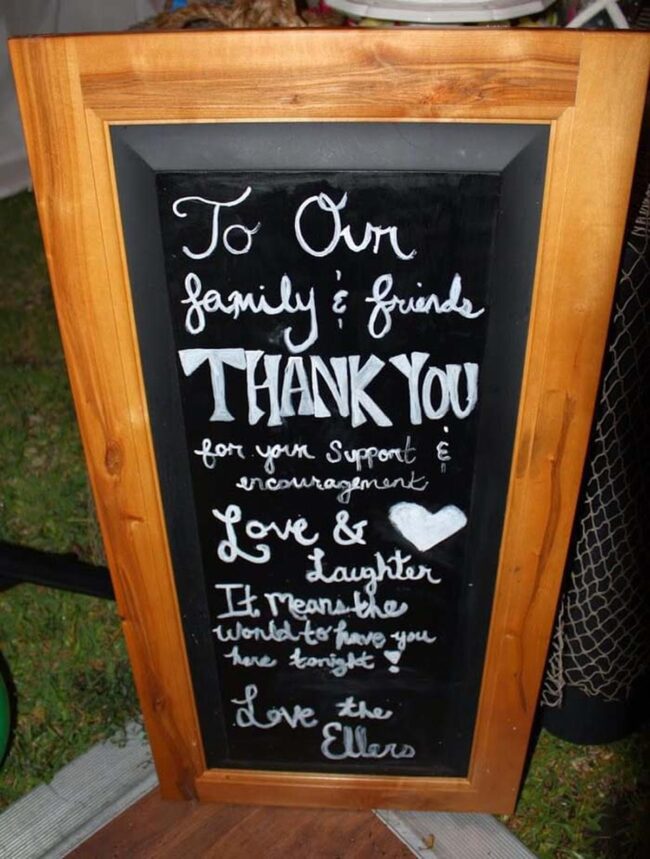 To Our
family & friends
THANK YOU
for your Support &
encouragement
Love &
Laughter
It Means the
world to have you
here tonight!
Love the
Ellers